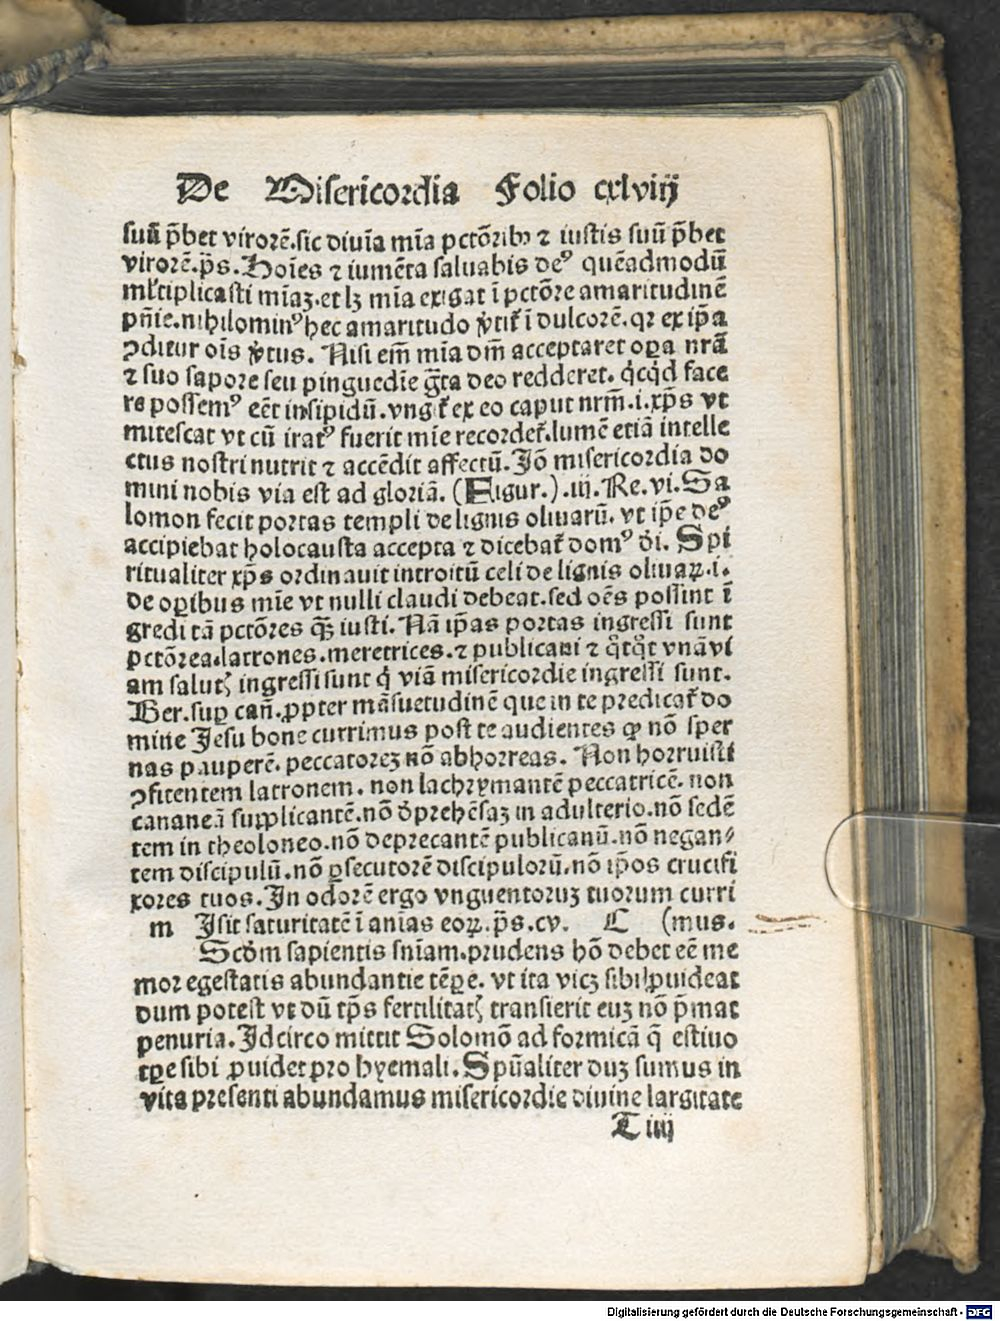 De Misericordia Folio cxlviij
suū p̄bet virorē.sic diuīa mīa pctōribꝫ ⁊ iustis suū p̄bet
virorē.p̄s.Hoīes ⁊ iumēta saluabis deꝰ quēadmodū
ml̄tiplicasti mīaꝫ.et lꝫ mīa exigat ī pctōre amaritudinē
pn̄ie.nihilominꝰ hec amaritudo v̓tit᷑ ī dulcorē.qꝛ ex ip̄a
ꝯditur oīs v̓tus. Nisi em̄ mīa dn̄i acceptaret oꝑa nr̄ā
⁊ suo sapore seu pinguedīe gr̄ta deo redderet. qͥcqͥd face
re possemꝰ eēt insipidū.vngit᷑ ex eo caput nrm̄.i.xp̄s vt
mitescat vt cū iratꝰ fuerit mīe recordet᷑.lumē etiā intelle
ctus nostri nutrit ⁊ accēdit affectū. Iō misericordia do
mini nobis via est ad gloriā. (Figur.) .iij.Re.vi.Sa
lomon fecit portas templi de lignis oliuarū. vt ip̄e deꝰ
accipiebat holocausta accepta ⁊ dicebat᷑ domꝰ d̓i. Spi
ritualiter xp̄s ordinauit introitū celi de lignis oliuaꝝ.i.
de oꝑibus mīe vt nulli claudi debeat.sed oēs possint ī
gredi tā pctōres qᷓꝫ iusti. Nā ip̄as portas ingressi sunt
pctōrea.latrones.meretrices.⁊ publicani ⁊ qͦtqͦt vnā vi
am salutꝭ ingressi sunt qͥ viā misericordie ingressi sunt.
Ber.suꝑ cāñ.ꝓpter māsuetudinē que in te predicat᷑ do
mine Jesu bone currimus post te audientes ꝙ nō sper
nas pauperē.peccatoreꝫ nō abhorreas. Non horruisti
ꝯfitentem latronem. non lachrymantē peccatricē. non
cananeā supplicantē.nō dp̄rehēsaꝫ in adulterio.nō sedē
tem in theoloneo.nō deprecantē publicanū.nō negan⸗
tem discipulū.nō ꝑsecutorē discipulorū.nō ip̄os crucifi
xores tuos.In odorē ergo vnguentoruꝫ tuorum curri
m Isit saturitatē ī anīas eoꝝ.p̄s.cv. C (mus.
Scd̓m sapientis sn̄iam.prudens hō debet eē me
mor egestatis abundantie tēꝑe. vt ita vicꝫ sibi ꝓuideat
dum potest vt dū tp̄s fertilitatꝭ transierit euꝫ nō p̄mat
penuria.Idcirco mittit Solomō ad formicā q̄ estiuo
tꝑe sibi ꝓuidet pro hyemali.Spūaliter duꝫ sumus in
vita presenti abundamus misericordie diuine largitate
T iiij
Digitalisierung gefördert durch die Deutsche Forschungsgemeinschaft - DFG